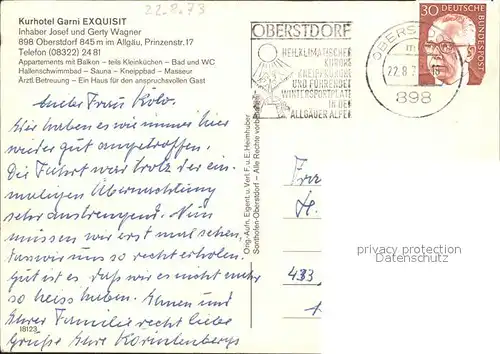 22.8.73
Kurhotel Garni EXQUISIT
Inhaber Josef und Gerty Wagner
898 Oberstdorf 845 m im Allgäu, Prinzenstr. 17
Telefon (08322) 24 81
Appartements mit Balkon - teils Kleinküchen - Bad und WC
Hallenschwimmbad - Sauna - Kneippbad - Masseur
Arztl. Betreuung - Ein Haus für den anspruchsvollen Gast
OBERSTDORF
HEILKLIMATISCHER
KURORT
KNEIPPKURORT
UND FÜHRENDER
WINTERSPORTPLATZ
IN DEN
ALLGÄUER ALPEN
22.8.7
898
30
DEUTSCHE BUNDESPOST
Liebe Frau Kolo.
Wir haben es wie immer hier
wieder gut angetroffen.
Die Fahrt war trotz der ein-
maligen Übernachtung
sehr anstrengend. Nun
müssen wir erst mal sehen,
dass wir uns so recht erholen.
Gut ist es, daß wir es nicht mehr
so heiss haben. Ihnen und
Ihrer Familie recht liebe
Grüße Ihre
18123
Orig.-Aufn. Eigent. u. Verl. F. u. E. Heimhuber
Sonthofen-Oberstdorf - Alle Rechte vorbehalten
Frau
H.
433
privacy protection
Datenschutz